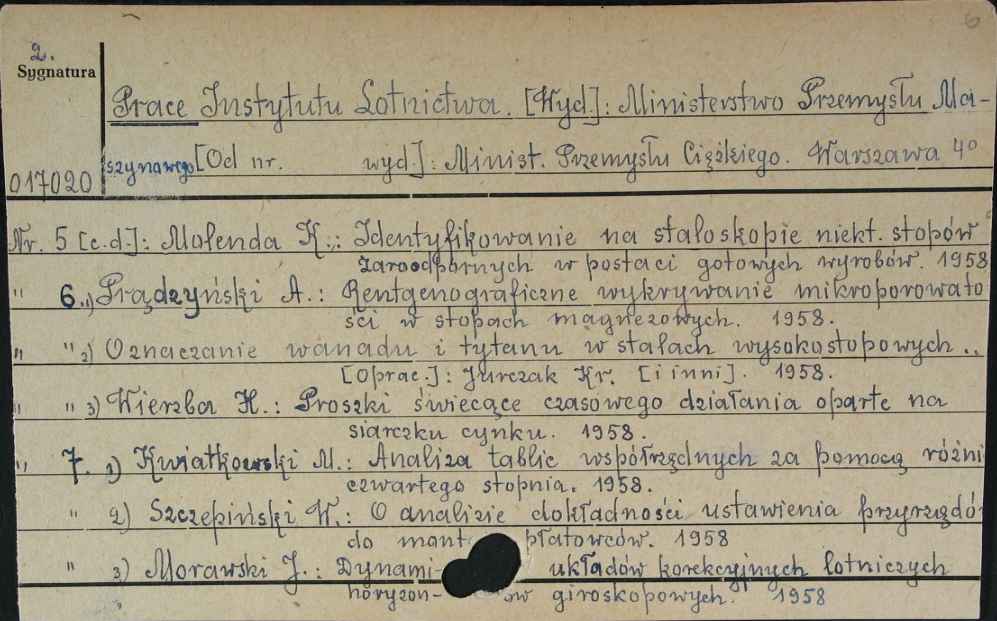 6
2.
Sygnatura
Prace Instytutu Lotnictwa. [Wyd]: Ministerstwo Przemysłu Ma-
szynowego [Od nr. wyd.]: Minist. Przemysłu Ciężkiego. Warszawa 4º
017020
Nr. 5 [c.d.]: Molenda K.: Identyfikowanie na staloskopie niekt. stopów
żaroodpornych w postaci gotowych wyrobów. 1958
" 6. 1) Prądzyński A.: Rentgenograficzne wykrywanie mikroporowato
ści w stopach magnezowych. 1958.
" " 2) Oznaczanie wanadu i tytanu w stalach wysokostopowych..
[Oprac.]: Jurczak Kr. [i inni]. 1958.
" " 3) Wierzba H.: Proszki świecące czasowego działania oparte na
siarczku cynku. 1958.
" 7. 1) Kwiatkowski M.: Analiza tablic współrzędnych za pomocą różni
czwartego stopnia. 1958.
" 2) Szczepiński W.: O analizie dokładności ustawienia przyrządó
do mont płatowców. 1958
" 3) Morawski J.: Dynami- układów korekcyjnych lotniczych
horyzon- ów giroskopowych. 1958